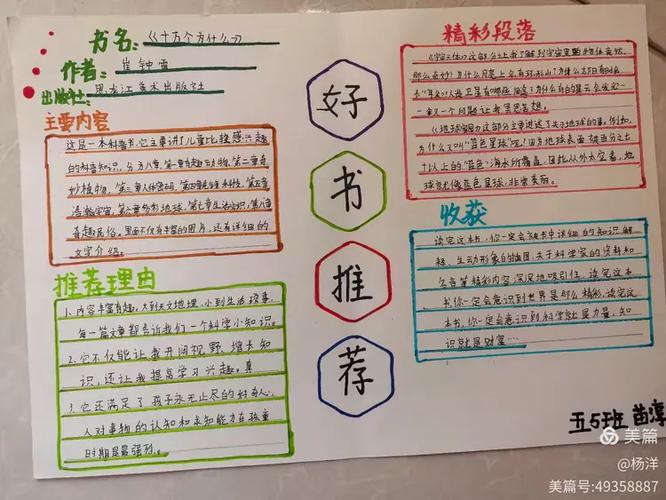 书名:《十万个为什么》
作者:崔钟雷
出版社:黑龙江美术出版社
主要内容
这是一本科普书,它主要讲了儿童比较感兴趣
的科普知识,分为八章,第一章有趣动物,第二章奇
妙植物,第三章人体密码,第四章先锋科技,第五章
浩瀚宇宙,第六章多彩地球,第七章生活常识,第八章
有趣民俗。里面不仅有丰富的图片,还有详细的
文字介绍。
推荐理由
1、内容丰富有趣。大到天文地理,小到生活琐事,
每一篇文章都告诉我们一个科学小知识。
2、它不仅能让我开阔视野,增长知
识,还让我提高学习兴趣。
3、它还满足了孩子永无止尽的好奇心,
人对事物的认知和求知能力在孩童
时期是最强烈。
好
书
推
荐
精彩段落
《宇宙天体》这部分让我了解到宇宙里
那么奇妙!为什么月亮上会有环形山?为什么太阳有时候
一个又一个问题让我浮想
《地球家园》这部分主要讲述了关于地球的事,例如,
为什么又叫"蓝色星球"呢,因为地球表面被百分之七
十以上的"蓝色"海水所覆盖,因此从外太空看,地
球就像蓝色星球,非常美丽。
收获
读完这本书,你一定会被书中详细的知识解
释,生动形象的插图,关于科学家的资料和
名言等精彩内容深深地吸引住,读完这本
书你一定会意识到世界是那么精彩,读完这
本书,你一定会意识到科学就是力量,知
识就是财富…
五5班 苗淳
美篇
@杨洋
美篇号:49358887